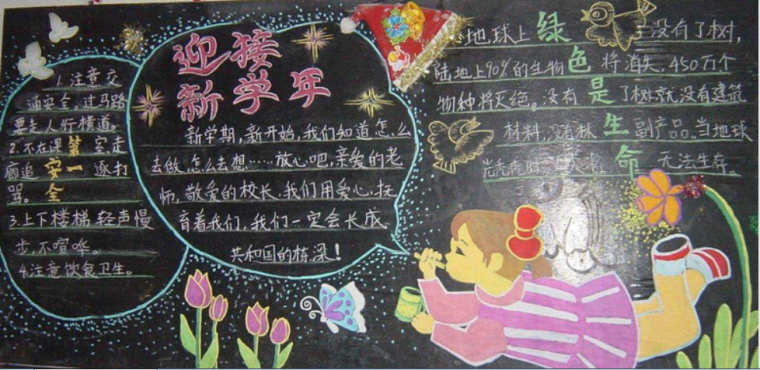 1.注意交
通安全,过马路
要走人行横道。
2.不在课
追安一逐打
全
3.上下楼梯,轻声慢
步,不喧哗。
4.注意饮食卫生。
迎接
新学年
新学期,新开始,我们知道怎么
去做,怎么去想……放心吧,亲爱的老
师,敬爱的校长,我们用爱心,抚
育着我们,我们一定会长成
共和国的栋梁!
地球上绿没有了树,
陆地上90%的生物色将消失,450万个
物种将灭绝。没有是了树就没有建筑
材料,没有林生副产品,当地球
命无法生存。